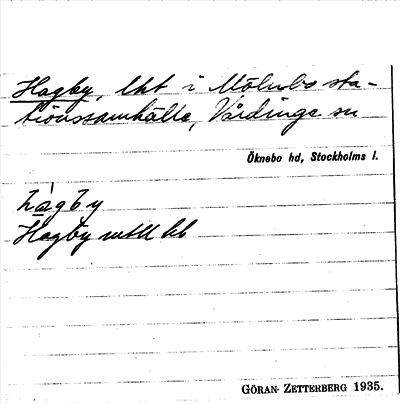 Hagby, lht i Mölnbo sta-
tionssamhälle, Vårdinge sn
Öknebo hd, Stockholms l.
hàgby
Hagby mtll bb
GÖRAN ZETTERBERG 1935.